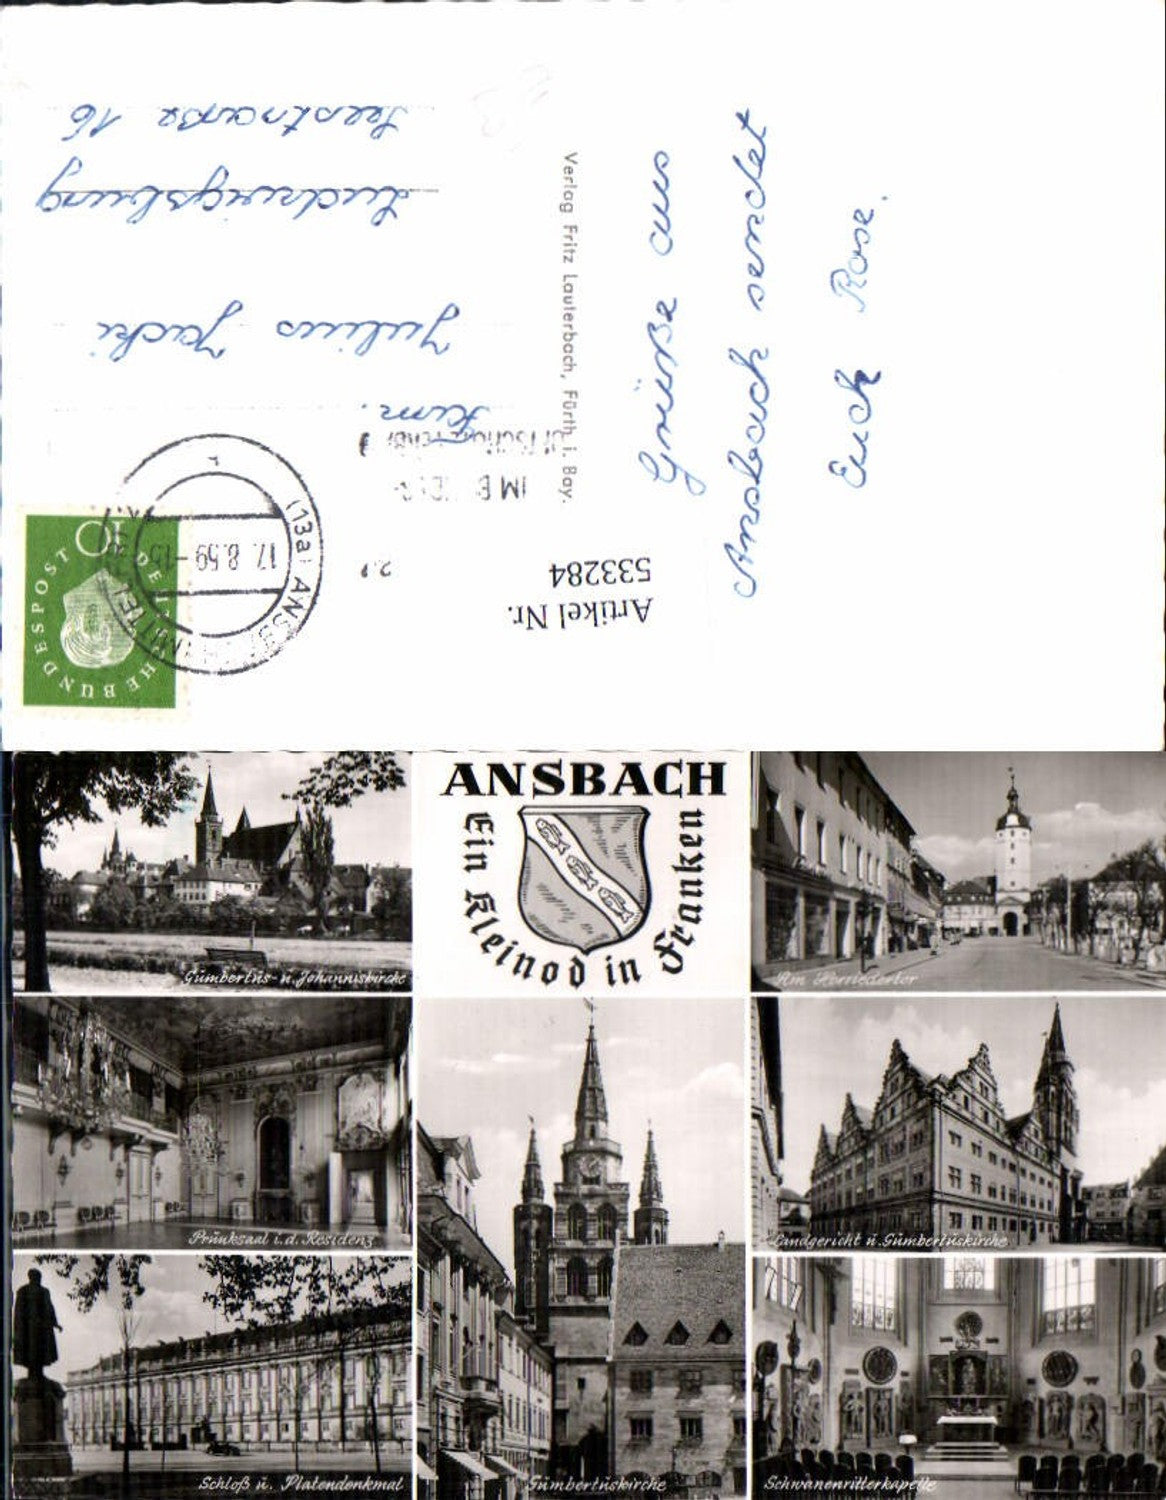 Grüße aus
Ansbach sendet
Euch Rose.
Verlag Fritz Lauterbach, Fürth i. Bay.
Artikel Nr.
533284
(13a) ANSB
MITTEL
17.8.59-15
DEUTSCHE BUNDESPOST
10
Fam.
Julius Jacki
Ludwigsburg
Seestraße 16
ANSBACH
Ein Kleinod in Franken
Gumbertus- u. Johanniskirche
Am Herriedertor
Prunksaal i. d. Residenz
Landgericht u. Gumbertuskirche
Schloß u. Platendenkmal
Gumbertuskirche
Schwanenritterkapelle